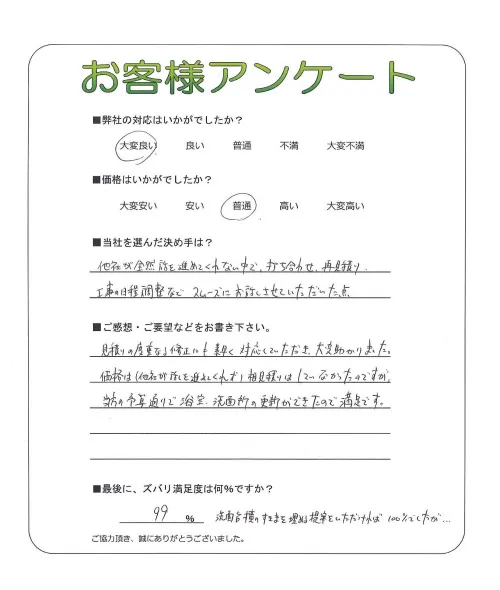 お客様アンケート
■弊社の対応はいかがでしたか？
大変良い　良い　普通　不満　大変不満
■価格はいかがでしたか？
大変安い　安い　普通　高い　大変高い
■当社を選んだ決め手は？
他社が全然話を進めてくれない中で、打ち合わせ、再見積り、
工事の日程調整など スムーズにお話しさせていただいた点
■ご感想・ご要望などをお書き下さい。
見積りの度重なる修正にも素早く対応していただき、大変助かりました。
価格は(他社が話しを進めてくれず)相見積りはしていなかったのですが、
当方の予算通りで浴室、洗面所の更新ができたので満足です。
■最後に、ズバリ満足度は何%ですか？
99 % 洗面台横のすきまを埋める提案をいただければ 100%でしたが…
ご協力頂き、誠にありがとうございました。